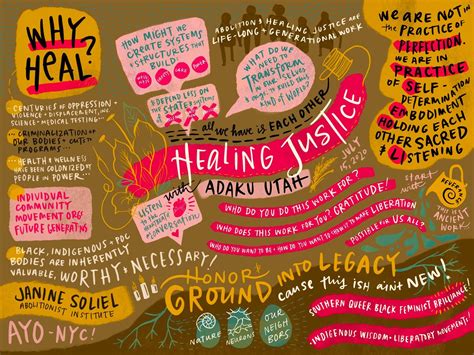 WHY
HEAL?
CENTURIES OF OPPRESSION +
VIOLENCE + DISPLACEMENT, INC.
SCIENCE + MEDICAL TESTING...
... CRIMINALIZATION OF
OUR BODIES + CUTS
PROGRAMS...
... HEALTH + WELLNESS
HAVE BEEN COLONIZED BY
PEOPLE IN POWER...
INDIVIDUAL
COMMUNITY
MOVEMENT ORG/
FUTURE GENERAT
BLACK, INDIGENOUS + POC
BODIES ARE INHERENTLY
VALUABLE, WORTHY + NECESSARY!
JANINE SOLIEL
ABOLITIONIST
INSTITUTE
AYO-NYC!
HOW MIGHT WE
CREATE SYSTEMS
+ STRUCTURES THAT
BUILD:
DEPEND LESS ON
THE STATE
ABOLITION & HEALING JUSTICE ARE
LIFE-LONG + GENERATIONAL WORK
WHAT DO WE
NEED TO
TRANSFORM
IN OURSELVES
KIND OF WORLD?
all we have is EACH OTHER
HEALING JUSTICE
with ADAKU UTAH
JULY
15, 2020
LISTEN
CONVERSATION
WE ARE NOT
IN THE
PRACTICE OF
PERFECTION.
WE ARE IN
PRACTICE
OF SELF-
DETERMINATION
EMBODIMENT
HOLDING EACH
OTHER SACRED
+ LISTENING
start with
REVERENCE
THIS IS
ANCIENT
WORK
WHO DO YOU DO THIS WORK FOR?
WHO DOES THIS WORK FOR YOU? GRATITUDE!
WHO DO YOU WANT TO BE + HOW DO YOU WANT TO SHOW UP TO MAKE LIBERATION
POSSIBLE FOR US ALL?
HONOR
GROUND INTO LEGACY
cause this ish ain't NEW!
NATURE
NEURONS
OUR
NEIGH
BORS
SOUTHERN QUEER BLACK FEMINIST BRILLIANCE!
INDIGENOUS WISDOM + LIBERATORY MOVEMENTS!